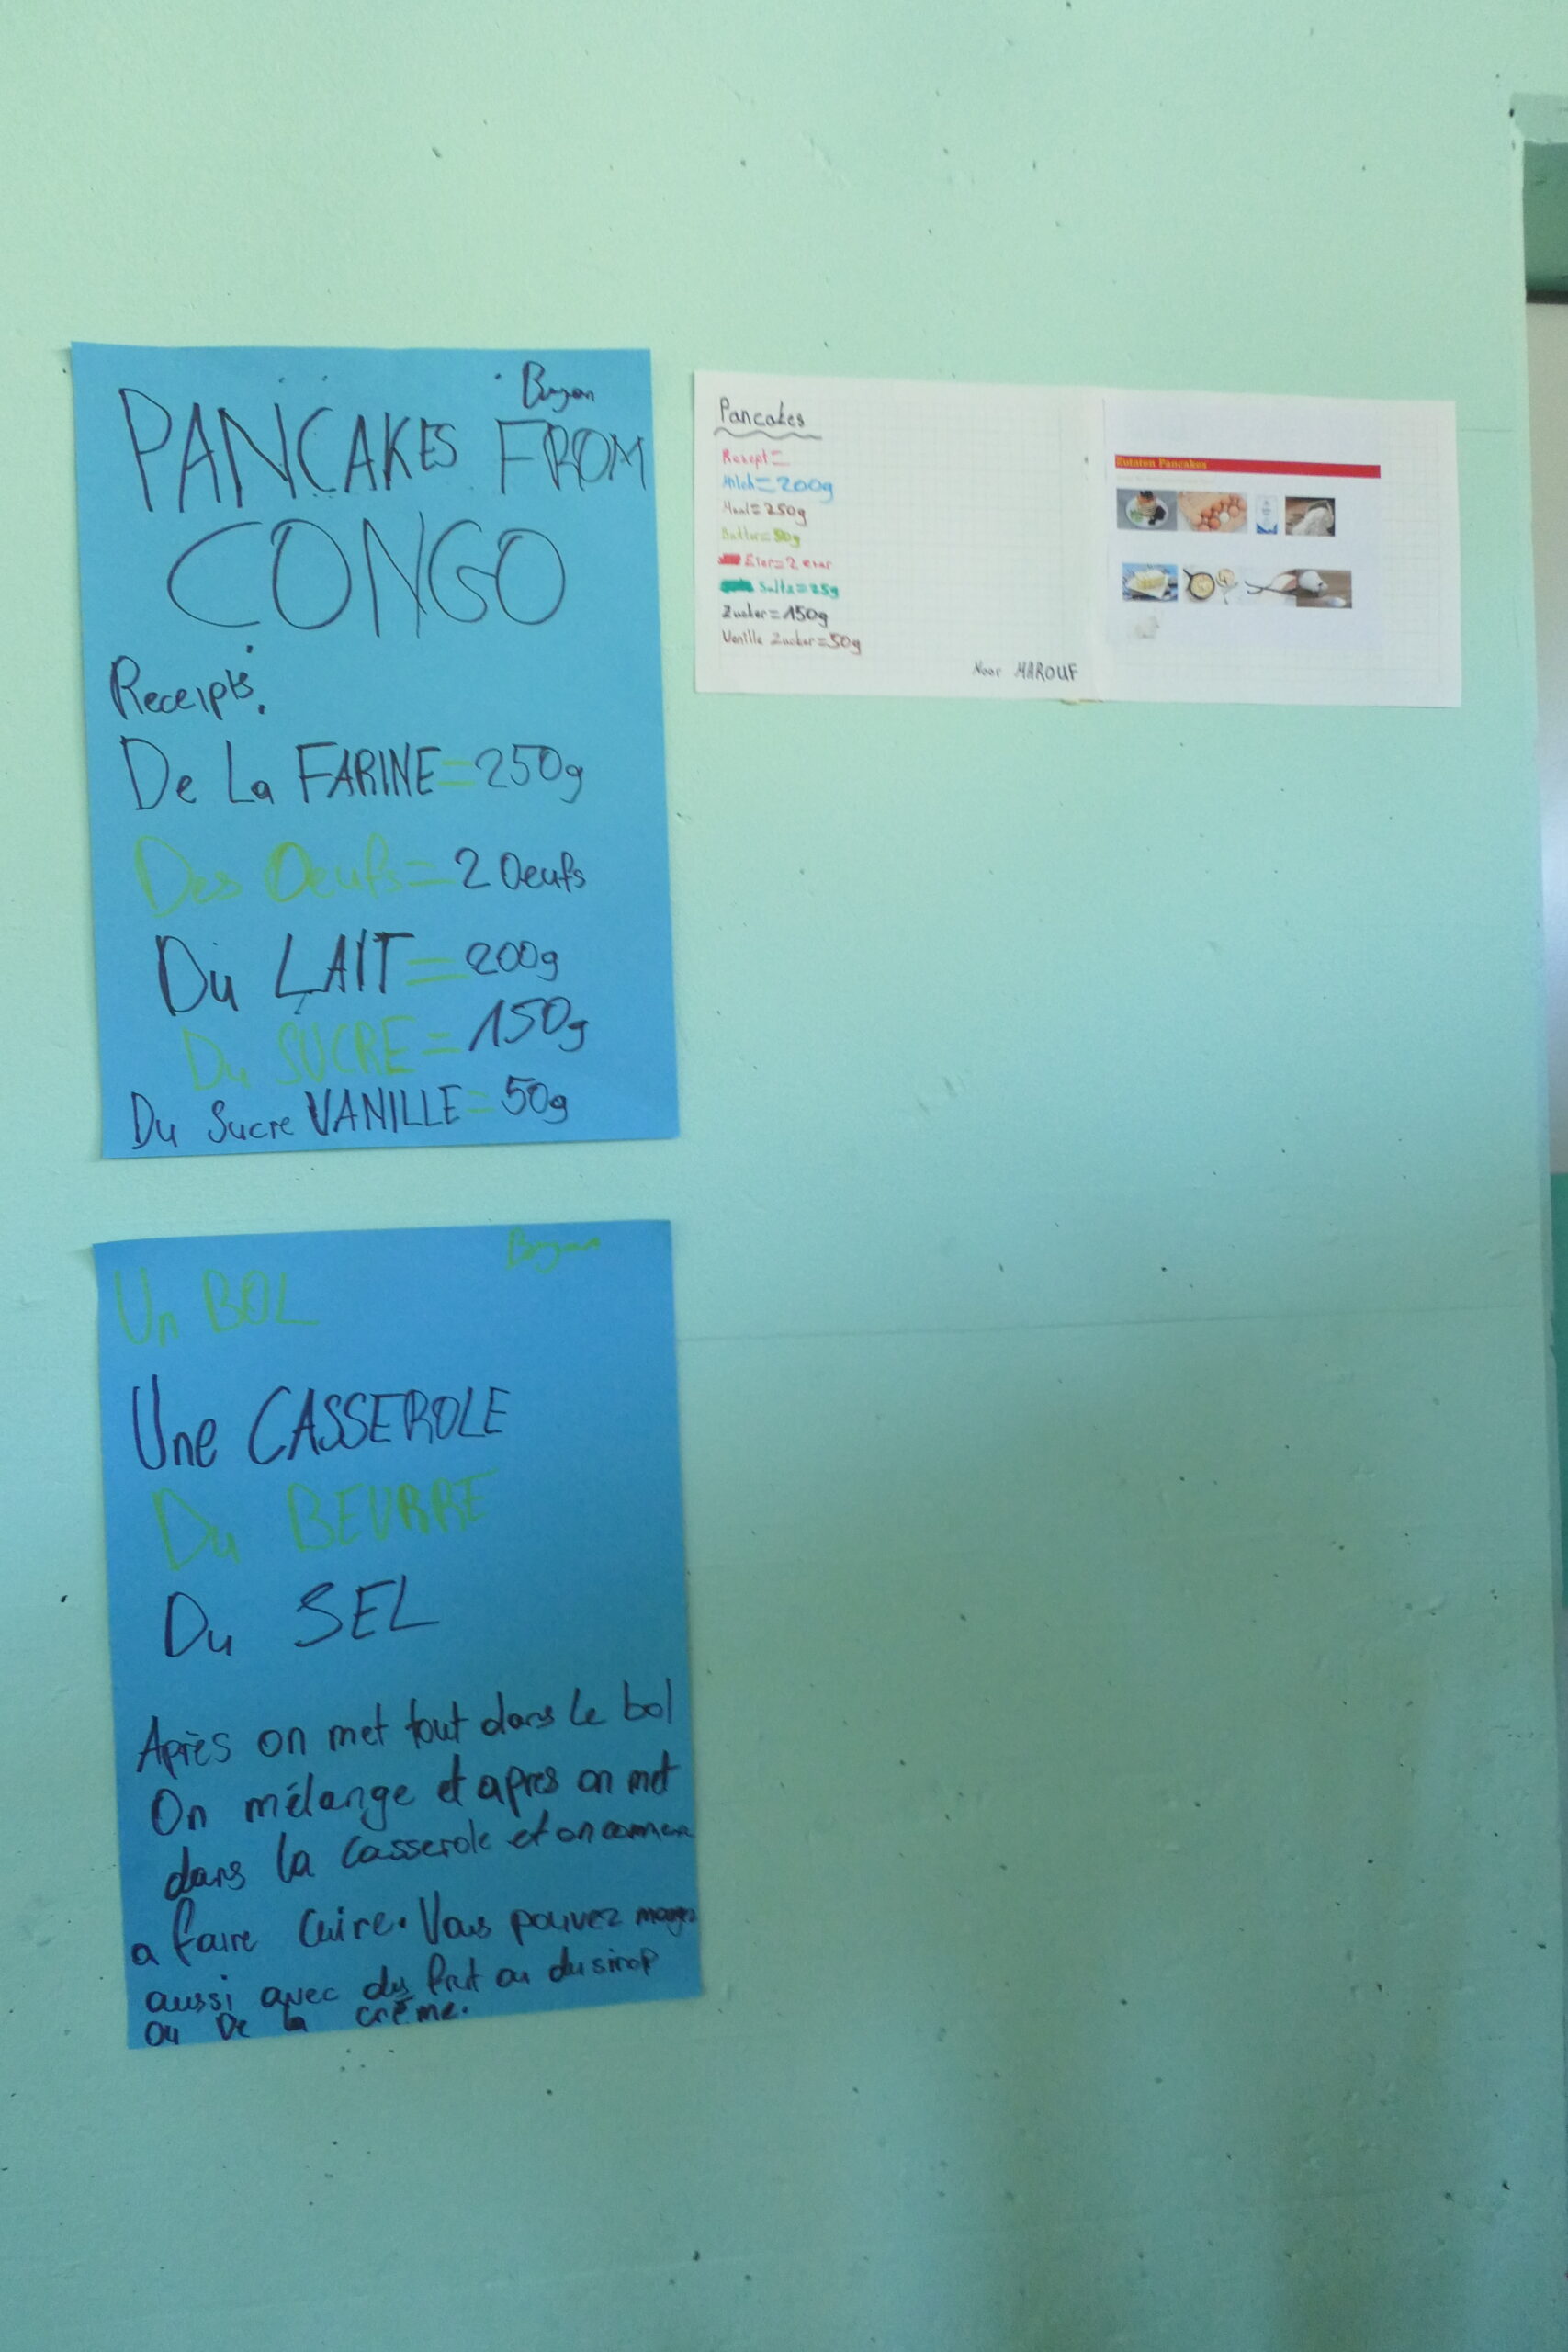 PANCAKES FROM
CONGO
Receipts:
De La FARINE = 250g
Des Oeufs = 2 Oeufs
Du LAIT = 200g
Du SUCRE = 150g
Du Sucre VANILLE = 50g
Un BOL
Une CASSEROLE
Du BEURRE
Du SEL
Après on met tout dans le bol
On mélange et apres on met
dans la Casserole et on
a faire Cuire. Vous pouvez
aussi avec du ou du sirop
ou De la crème.
Pancakes
Rezept =
Milch = 200g
= 250g
Butter = 50g
Eier = 2
= 25g
Zucker = 150g
Vanille Zucker = 50g
Noor MAROUF
Zutaten Pancakes